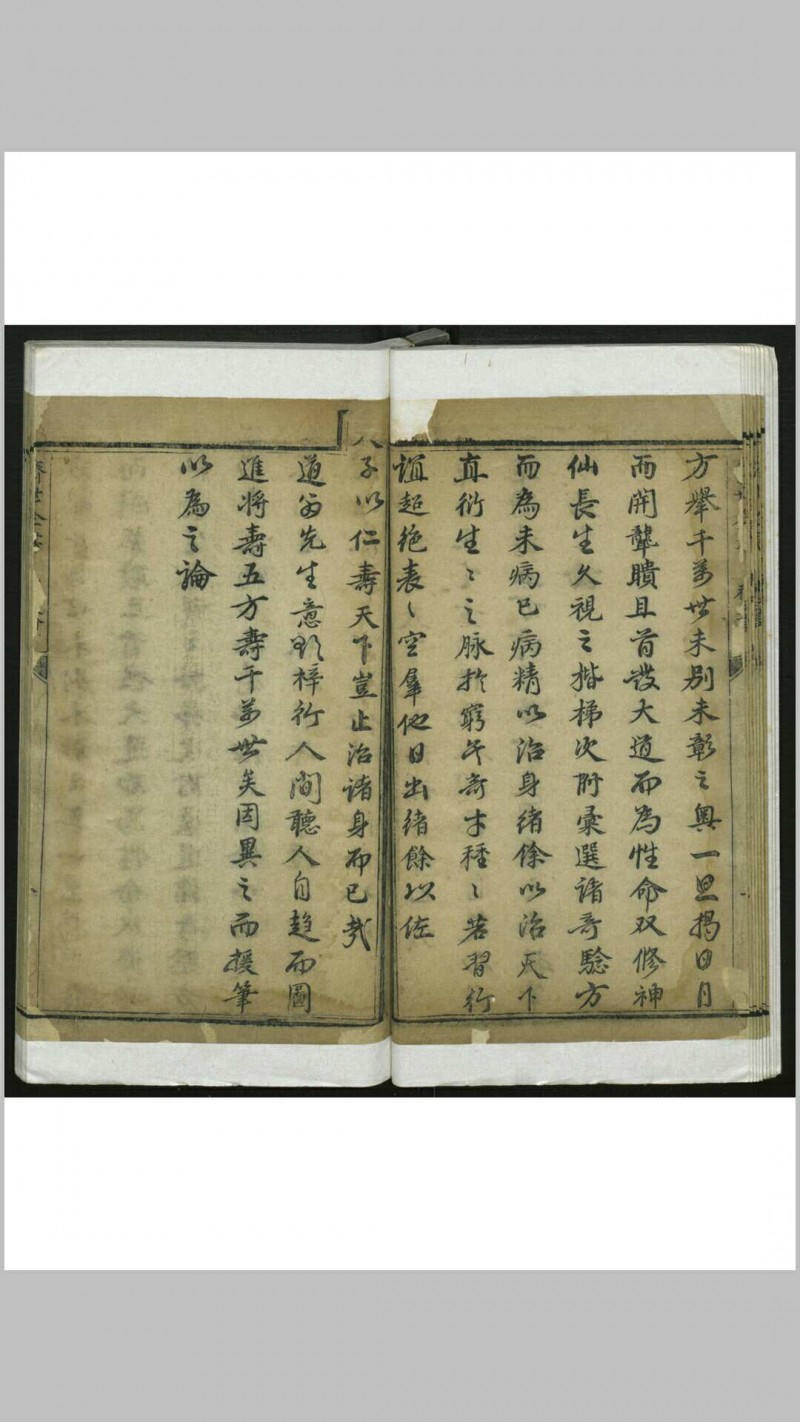 方舉千萬世未別未彰之奧一旦揭日月
而開聾瞶且首發大道而為性命双修神
仙長生久視之楷梯次肘彙選諸奇驗方
而為未病已病精以治身緒馀以治天下
直衍生〻之脉扵窮生奇才種〻若習行
誼超絶表〻空羣他日出緒餘以佐
子以仁壽天下豈止治諸身而已哉
道翁先生意欲梓行人間聽人自趋而圖
進将壽五方壽千萬世矣因異之而援筆
以為之論
濟世全